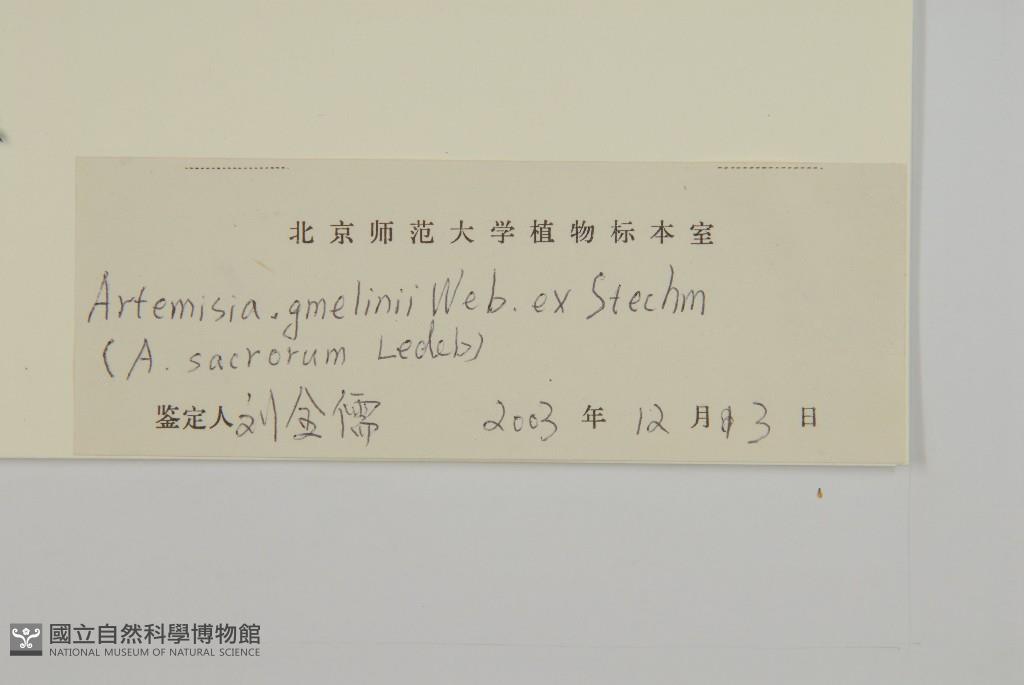 北京师范大学植物标本室
Artemisia. gmelinii Web. ex Stechm
(A. sacrorum Ledeb)
鉴定人 刘全儒 2003 年 12 月 3 日
國立自然科學博物館
NATIONAL MUSEUM OF NATURAL SCIENCE